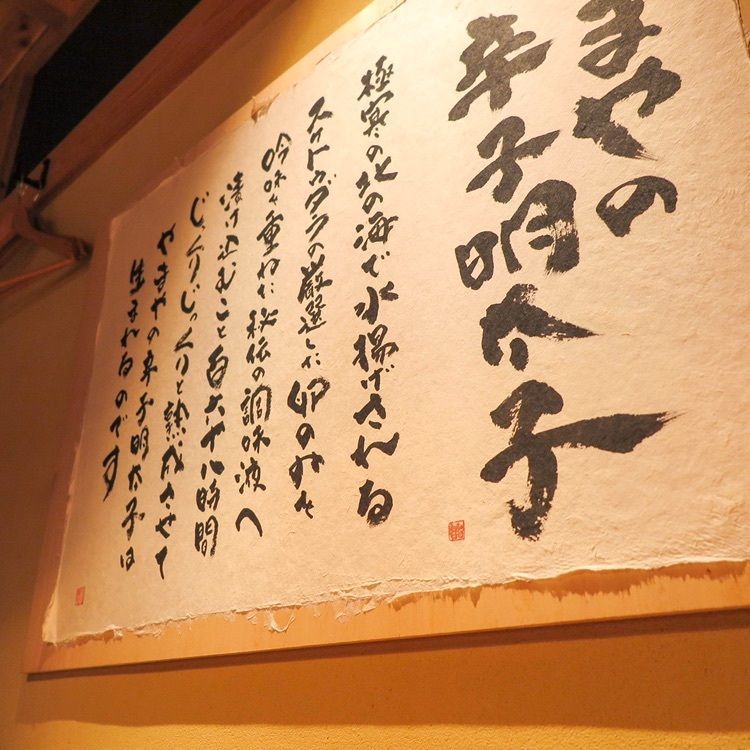 まやの
辛子明太子
極寒の北の海で水揚げされる
スケトウダラの厳選した卵のみを
吟味を重ねた秘伝の調味液へ
漬け込むこと百六十八時間
じっくりじっくりと熟成させて
やまやの辛子明太子は
生まれるのです